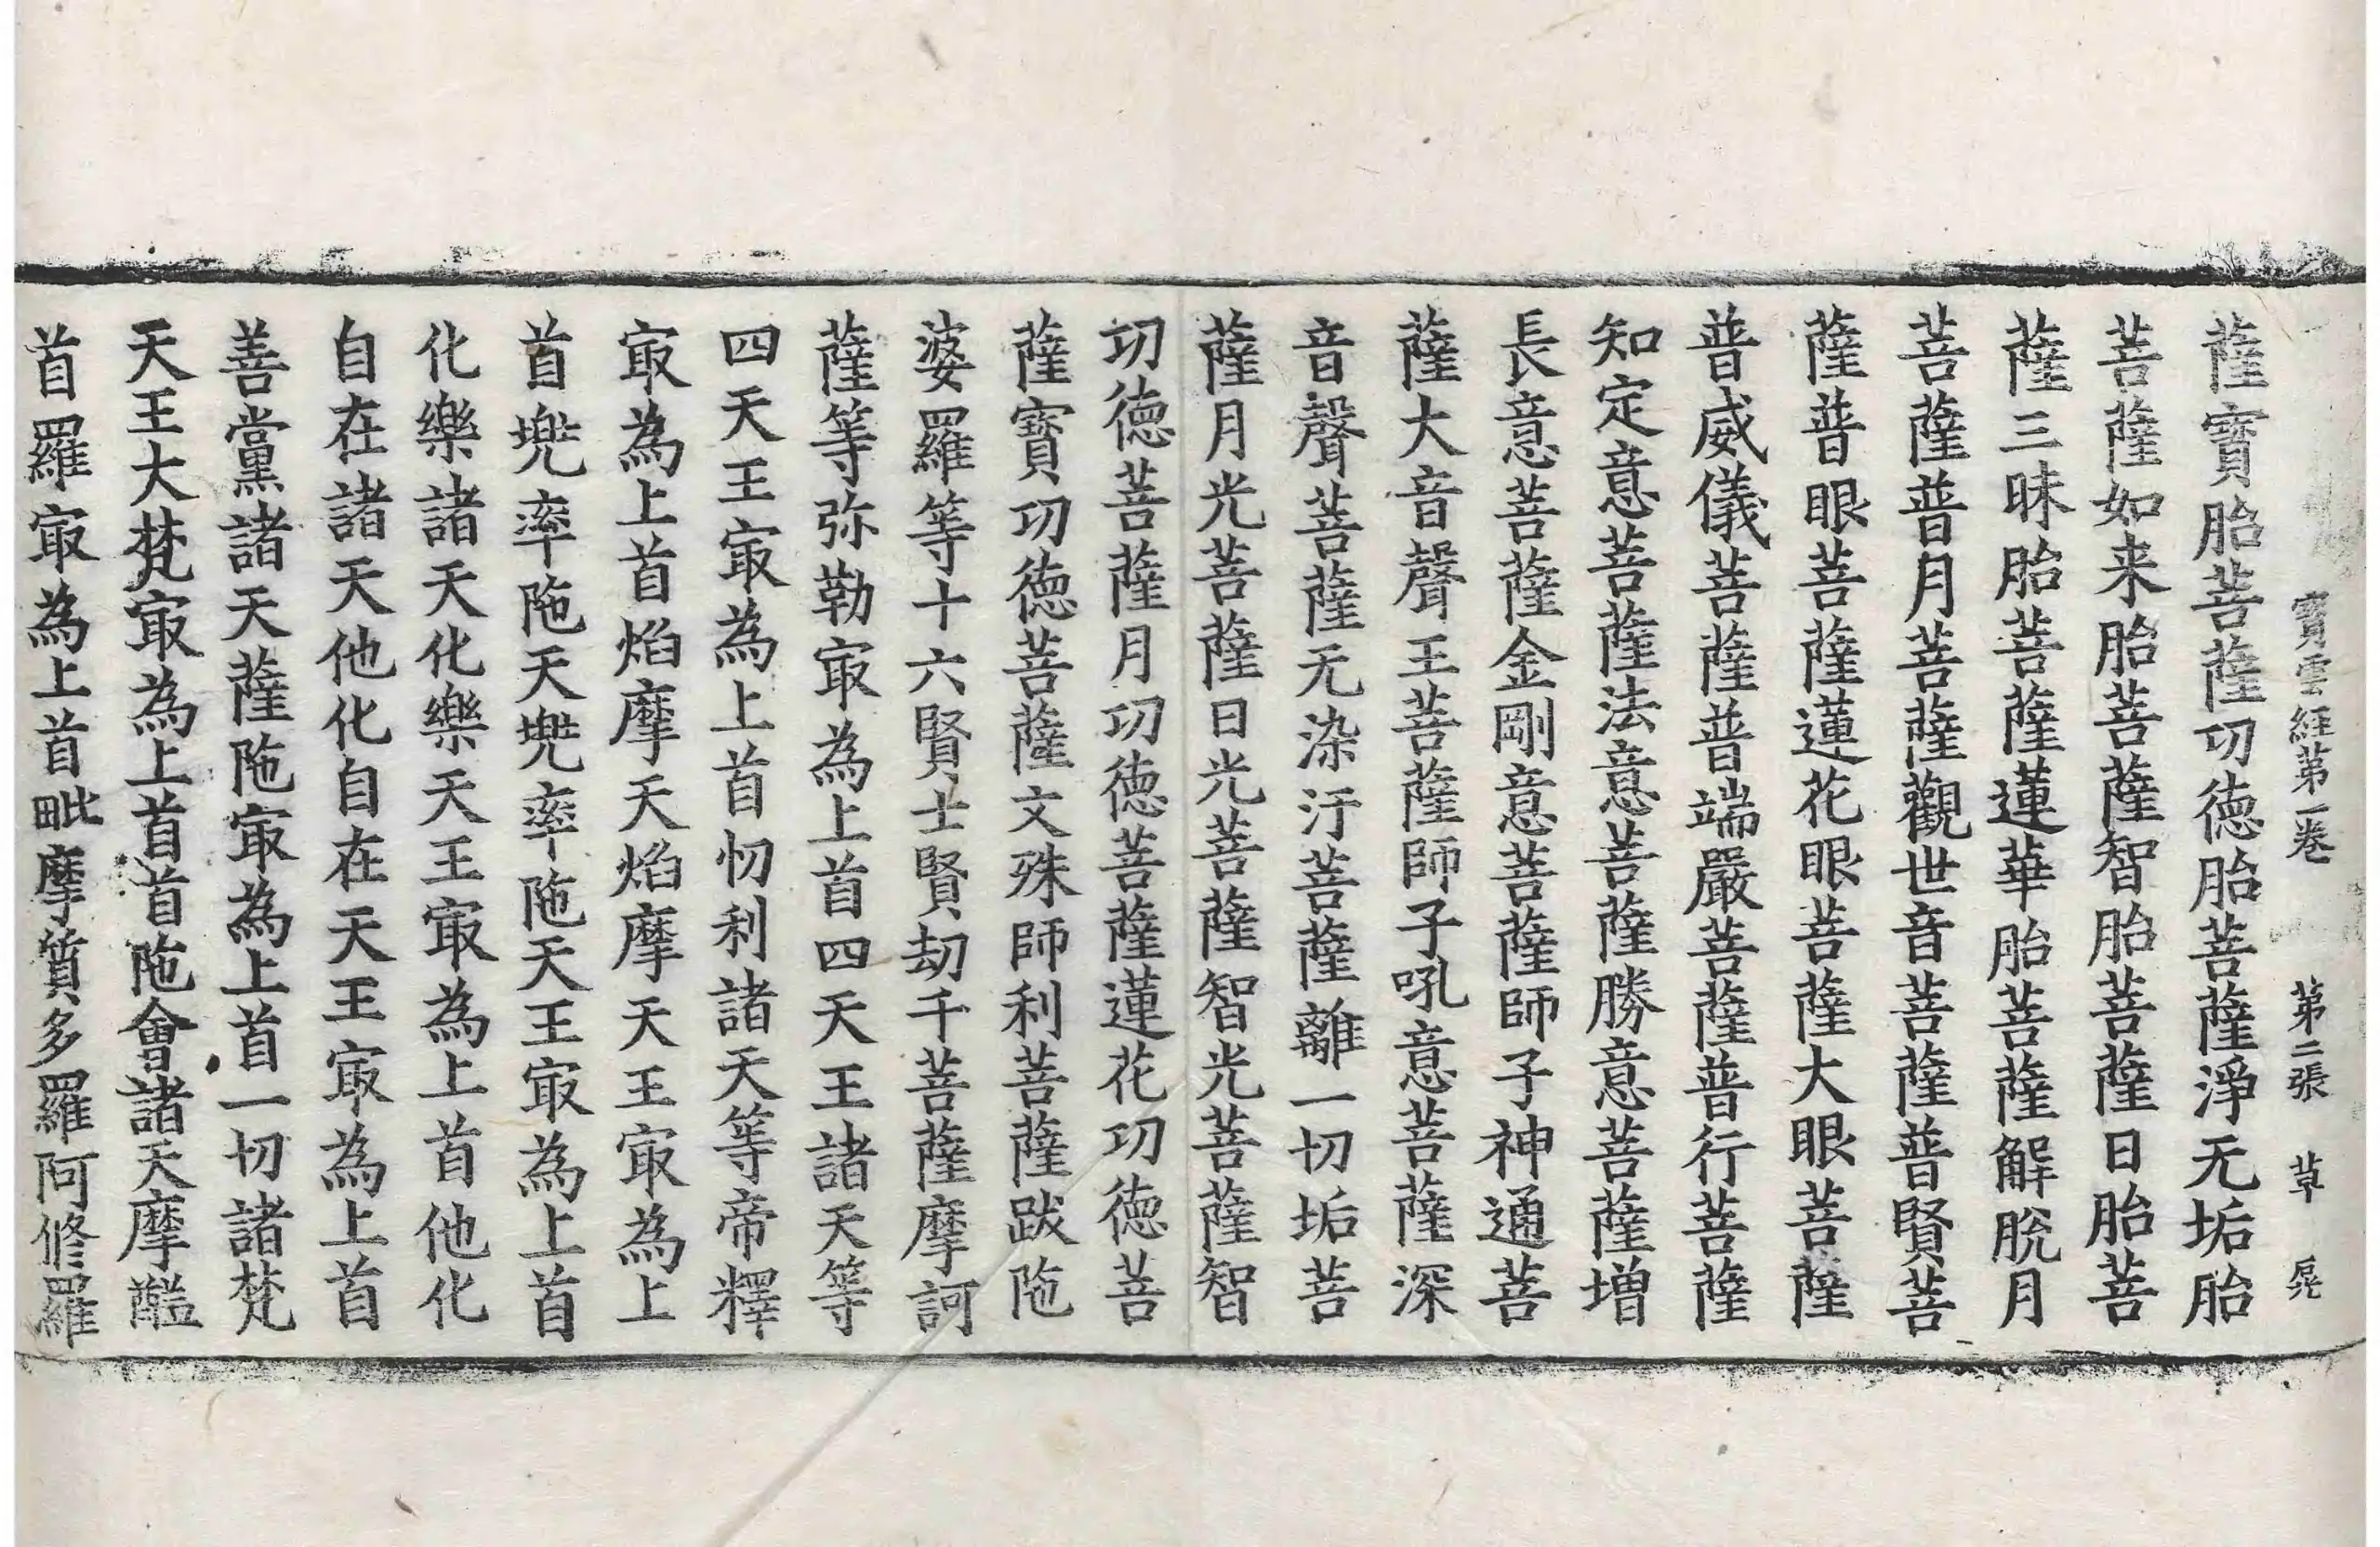 寶雲經第一卷 第二張 草
薩寶胎菩薩功德胎菩薩淨无垢胎
菩薩如来胎菩薩智胎菩薩日胎菩
薩三昧胎菩薩蓮華胎菩薩解脫月
菩薩普月菩薩觀世音菩薩普賢菩
薩普眼菩薩蓮花眼菩薩大眼菩薩
普威儀菩薩普端嚴菩薩普行菩薩
知定意菩薩法意菩薩勝意菩薩增
長意菩薩金剛意菩薩師子神通菩
薩大音聲王菩薩師子吼意菩薩深
音聲菩薩无染汙菩薩離一切垢菩
薩月光菩薩日光菩薩智光菩薩智
功德菩薩月功德菩薩蓮花功德菩
薩寶功德菩薩文殊師利菩薩跋陁
婆羅等十六賢士賢劫千菩薩摩訶
薩等弥勒㝡為上首四天王諸天等
四天王㝡為上首忉利諸天等帝釋
㝡為上首焰摩天焰摩天王㝡為上
首兠率陁天兠率陁天王㝡為上首
化樂諸天化樂天王㝡為上首他化
自在諸天他化自在天王㝡為上首
善黨諸天薩陁㝡為上首一切諸梵
天王大梵㝡為上首首陁會諸天摩醯
首羅㝡為上首毗摩質多羅阿修羅